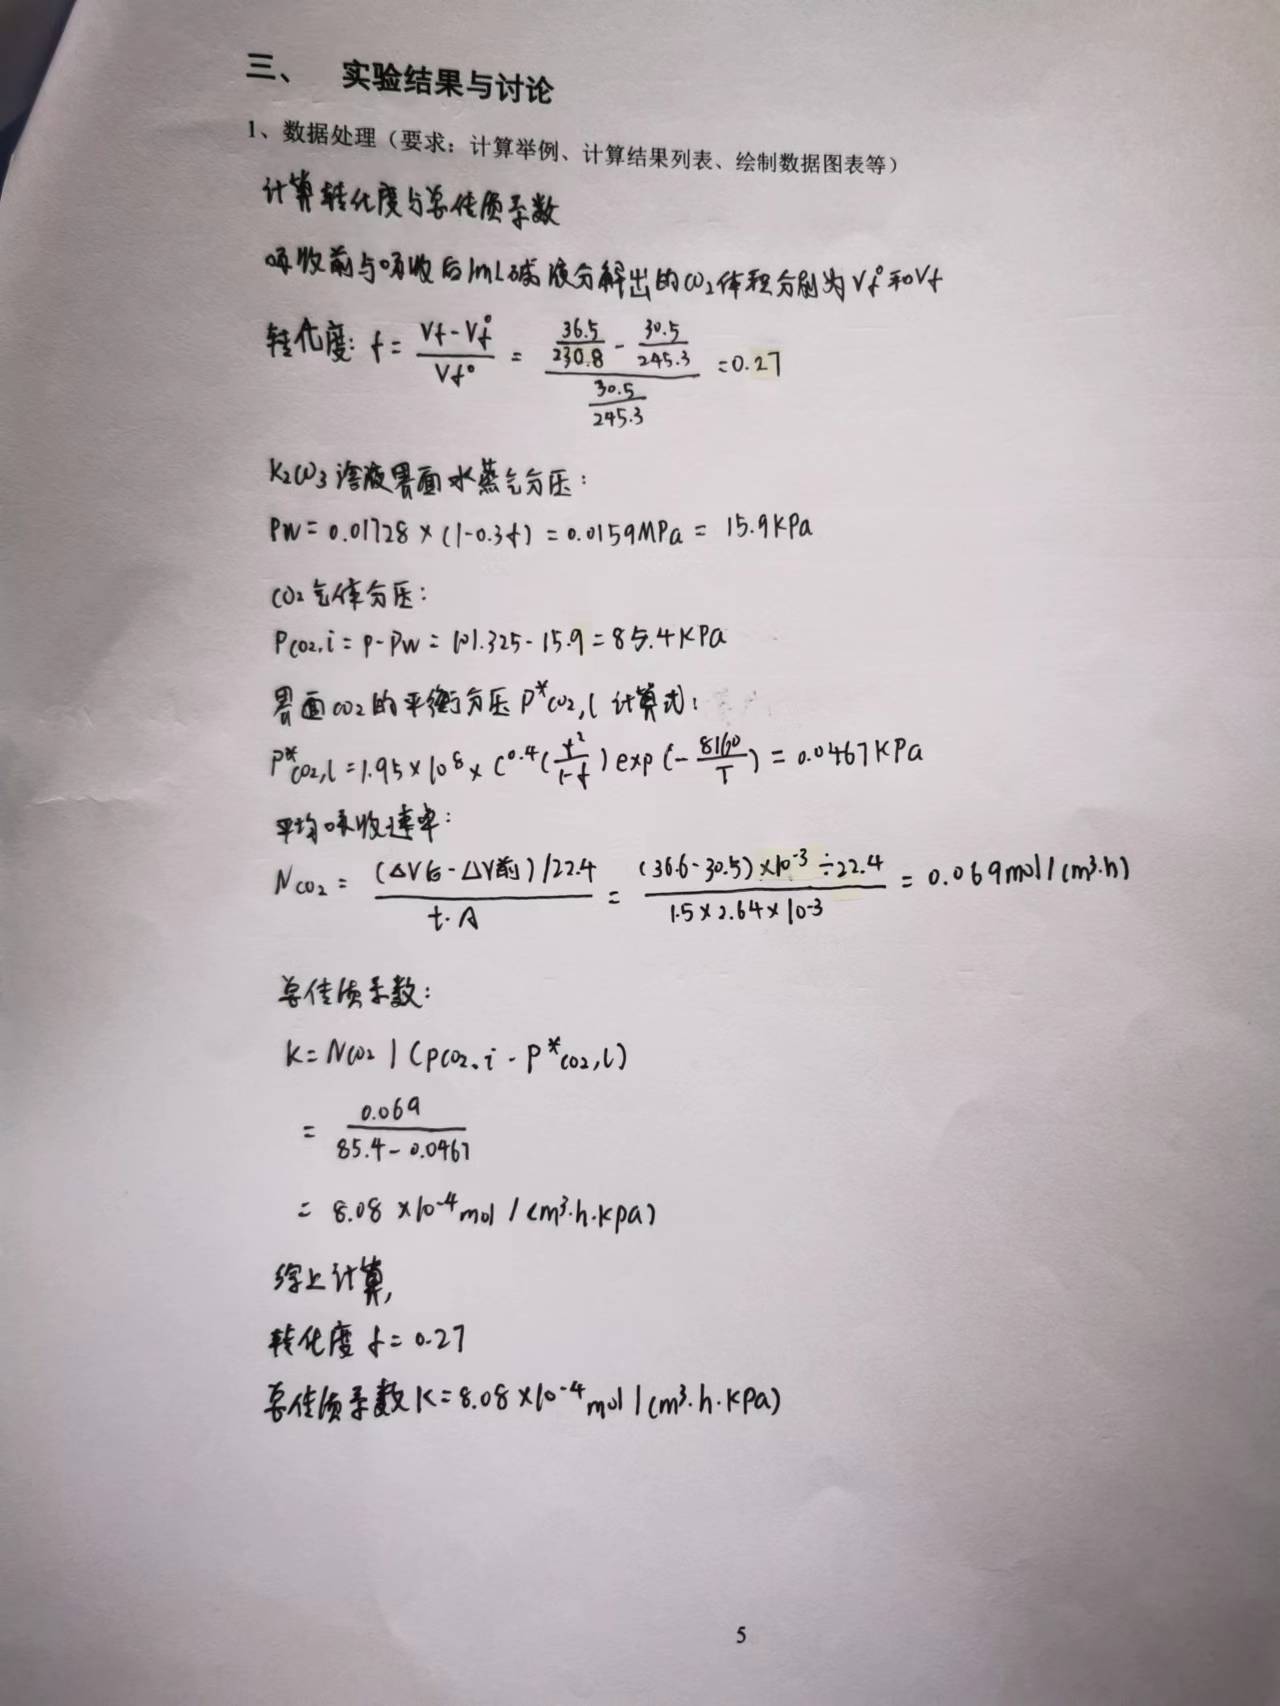 三、 实验结果与讨论
1、数据处理（要求：计算举例、计算结果列表、绘制数据图表等）
计算转化度与总传质系数
吸收前与吸收后1mL碱液分解出的CO₂体积分别为Vf°和Vf
转化度: f = (Vf - Vf°)/Vf° = (36.5/230.8 - 30.5/245.3)/(30.5/245.3) = 0.27
K₂CO₃溶液界面水蒸气分压:
PW = 0.01728 × (1-0.3f) = 0.0159MPa = 15.9KPa
CO₂气体分压:
PCO₂,i = P-PW = 101.325-15.9 = 85.4KPa
界面CO₂的平衡分压P*CO₂,l 计算式:
P*CO₂,l = 1.95×10⁸× C^0.4 (f²/(1-f)) exp(-8160/T) = 0.0467KPa
平均吸收速率:
NCO₂ = ((ΔV后-ΔV前)/22.4)/(t·A) = ((36.6-30.5)×10⁻³÷22.4)/(1.5×2.64×10⁻³) = 0.069mol/(m³·h)
总传质系数:
K = NCO₂/(PCO₂,i - P*CO₂,l)
= 0.069/(85.4-0.0467)
= 8.08×10⁻⁴mol/(m³·h·KPa)
综上计算,
转化度 f = 0.27
总传质系数K=8.08×10⁻⁴mol/(m³·h·KPa)
5